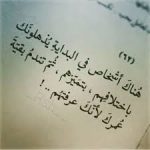 (٦٣)
هُناكَ أشخاص في البداية يُذهلونَك
باختلافِهم ، بتميّزهم ، ثم تندمُ بقيّة
عُمركَ لأنّكَ عرفتهم .. !